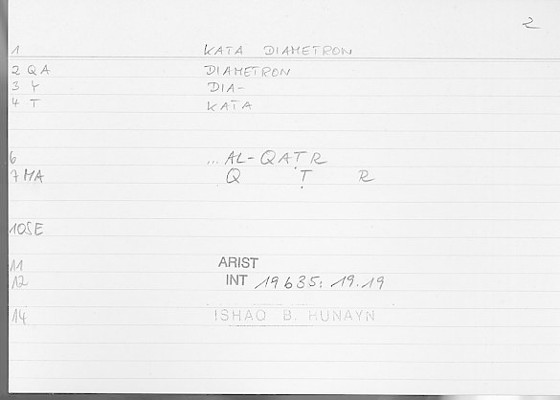 2
1 KATA DIAMETRON
2 QA DIAMETRON
3 Y DIA-
4 T KATA
6 ... AL-QAṬR
7 MA Q Ṭ R
10 SE
11 ARIST
12 INT 19635: 19.19
14 ISHAQ B. HUNAYN